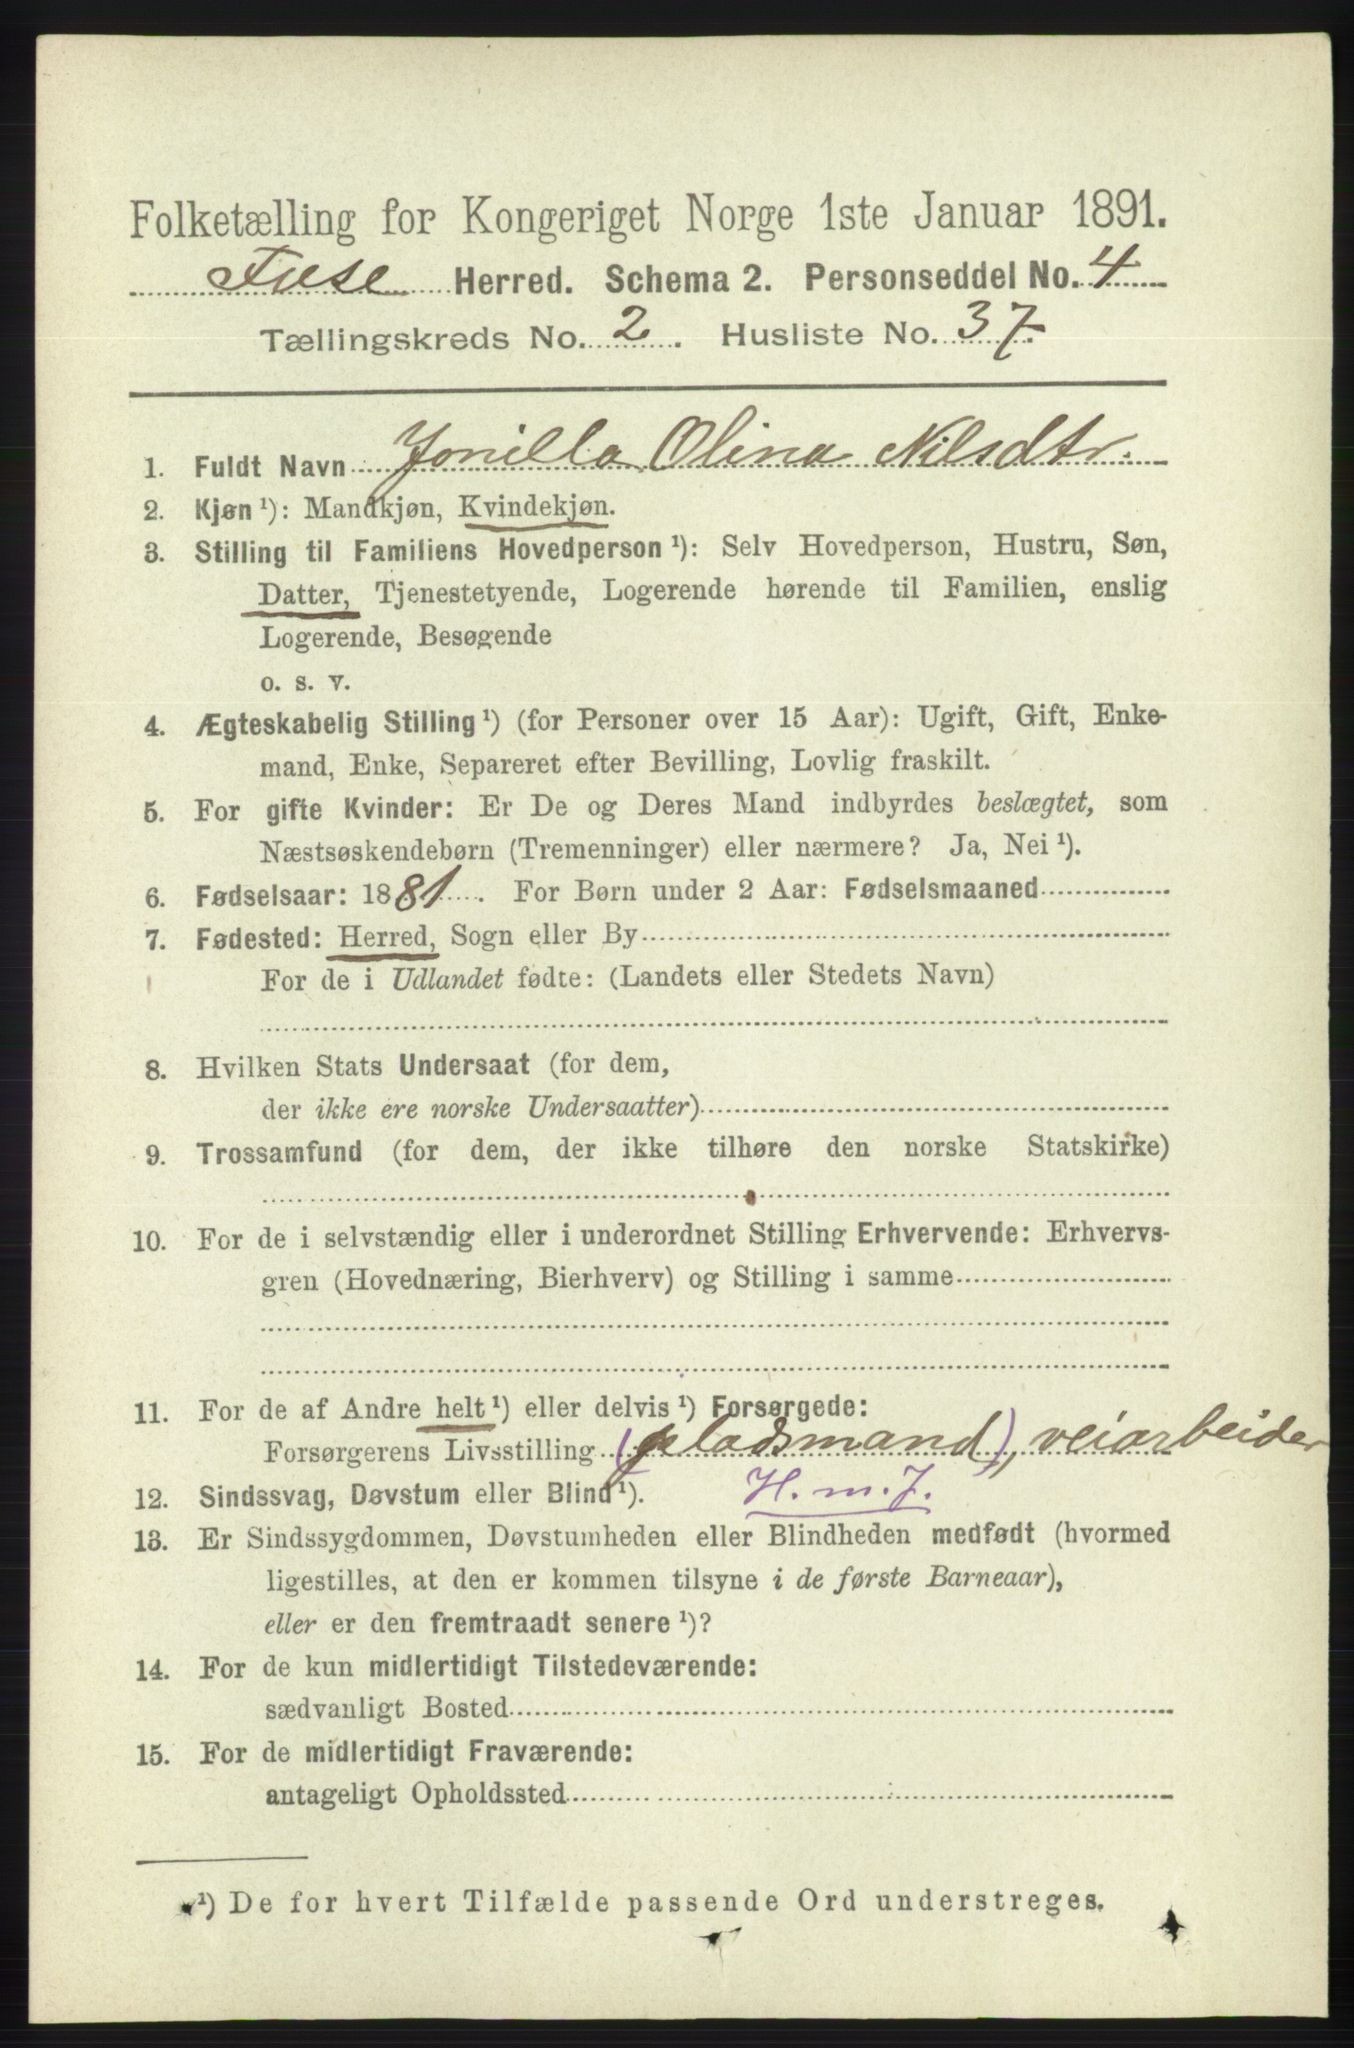 Folketælling for Kongeriget Norge 1ste Januar 1891.
Fuse Herred. Schema 2. Personseddel No. 4
Tællingskreds No. 2. Husliste No. 37.
1. Fuldt Navn Jonilla Olina Nilsdtr.
2. Kjøn ¹): Mandkjøn, Kvindekjøn.
3. Stilling til Familiens Hovedperson ¹): Selv Hovedperson, Hustru, Søn,
Datter, Tjenestetyende, Logerende hørende til Familien, enslig
Logerende, Besøgende
o. s. v.
4. Ægteskabelig Stilling ¹) (for Personer over 15 Aar): Ugift, Gift, Enke-
mand, Enke, Separeret efter Bevilling, Lovlig fraskilt.
5. For gifte Kvinder: Er De og Deres Mand indbyrdes beslægtet, som
Næstsøskendebørn (Tremenninger) eller nærmere? Ja, Nei ¹).
6. Fødselsaar: 1881. For Børn under 2 Aar: Fødselsmaaned
7. Fødested: Herred, Sogn eller By
For de i Udlandet fødte: (Landets eller Stedets Navn)
8. Hvilken Stats Undersaat (for dem,
der ikke ere norske Undersaatter)
9. Trossamfund (for dem, der ikke tilhøre den norske Statskirke)
10. For de i selvstændig eller i underordnet Stilling Erhvervende: Erhvervs-
gren (Hovednæring, Bierhverv) og Stilling i samme
11. For de af Andre helt ¹) eller delvis ¹) Forsørgede:
Forsørgerens Livsstilling (pladsmand), veiarbeider
12. Sindssvag, Døvstum eller Blind ¹). H. m. J.
13. Er Sindssygdommen, Døvstumheden eller Blindheden medfødt (hvormed
ligestilles, at den er kommen tilsyne i de første Barneaar),
eller er den fremtraadt senere ¹)?
14. For de kun midlertidigt Tilstedeværende:
sædvanligt Bosted
15. For de midlertidigt Fraværende:
antageligt Opholdssted
¹) De for hvert Tilfælde passende Ord understreges.